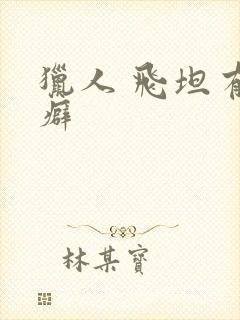 獵人 飛坦有
癖
林某寶